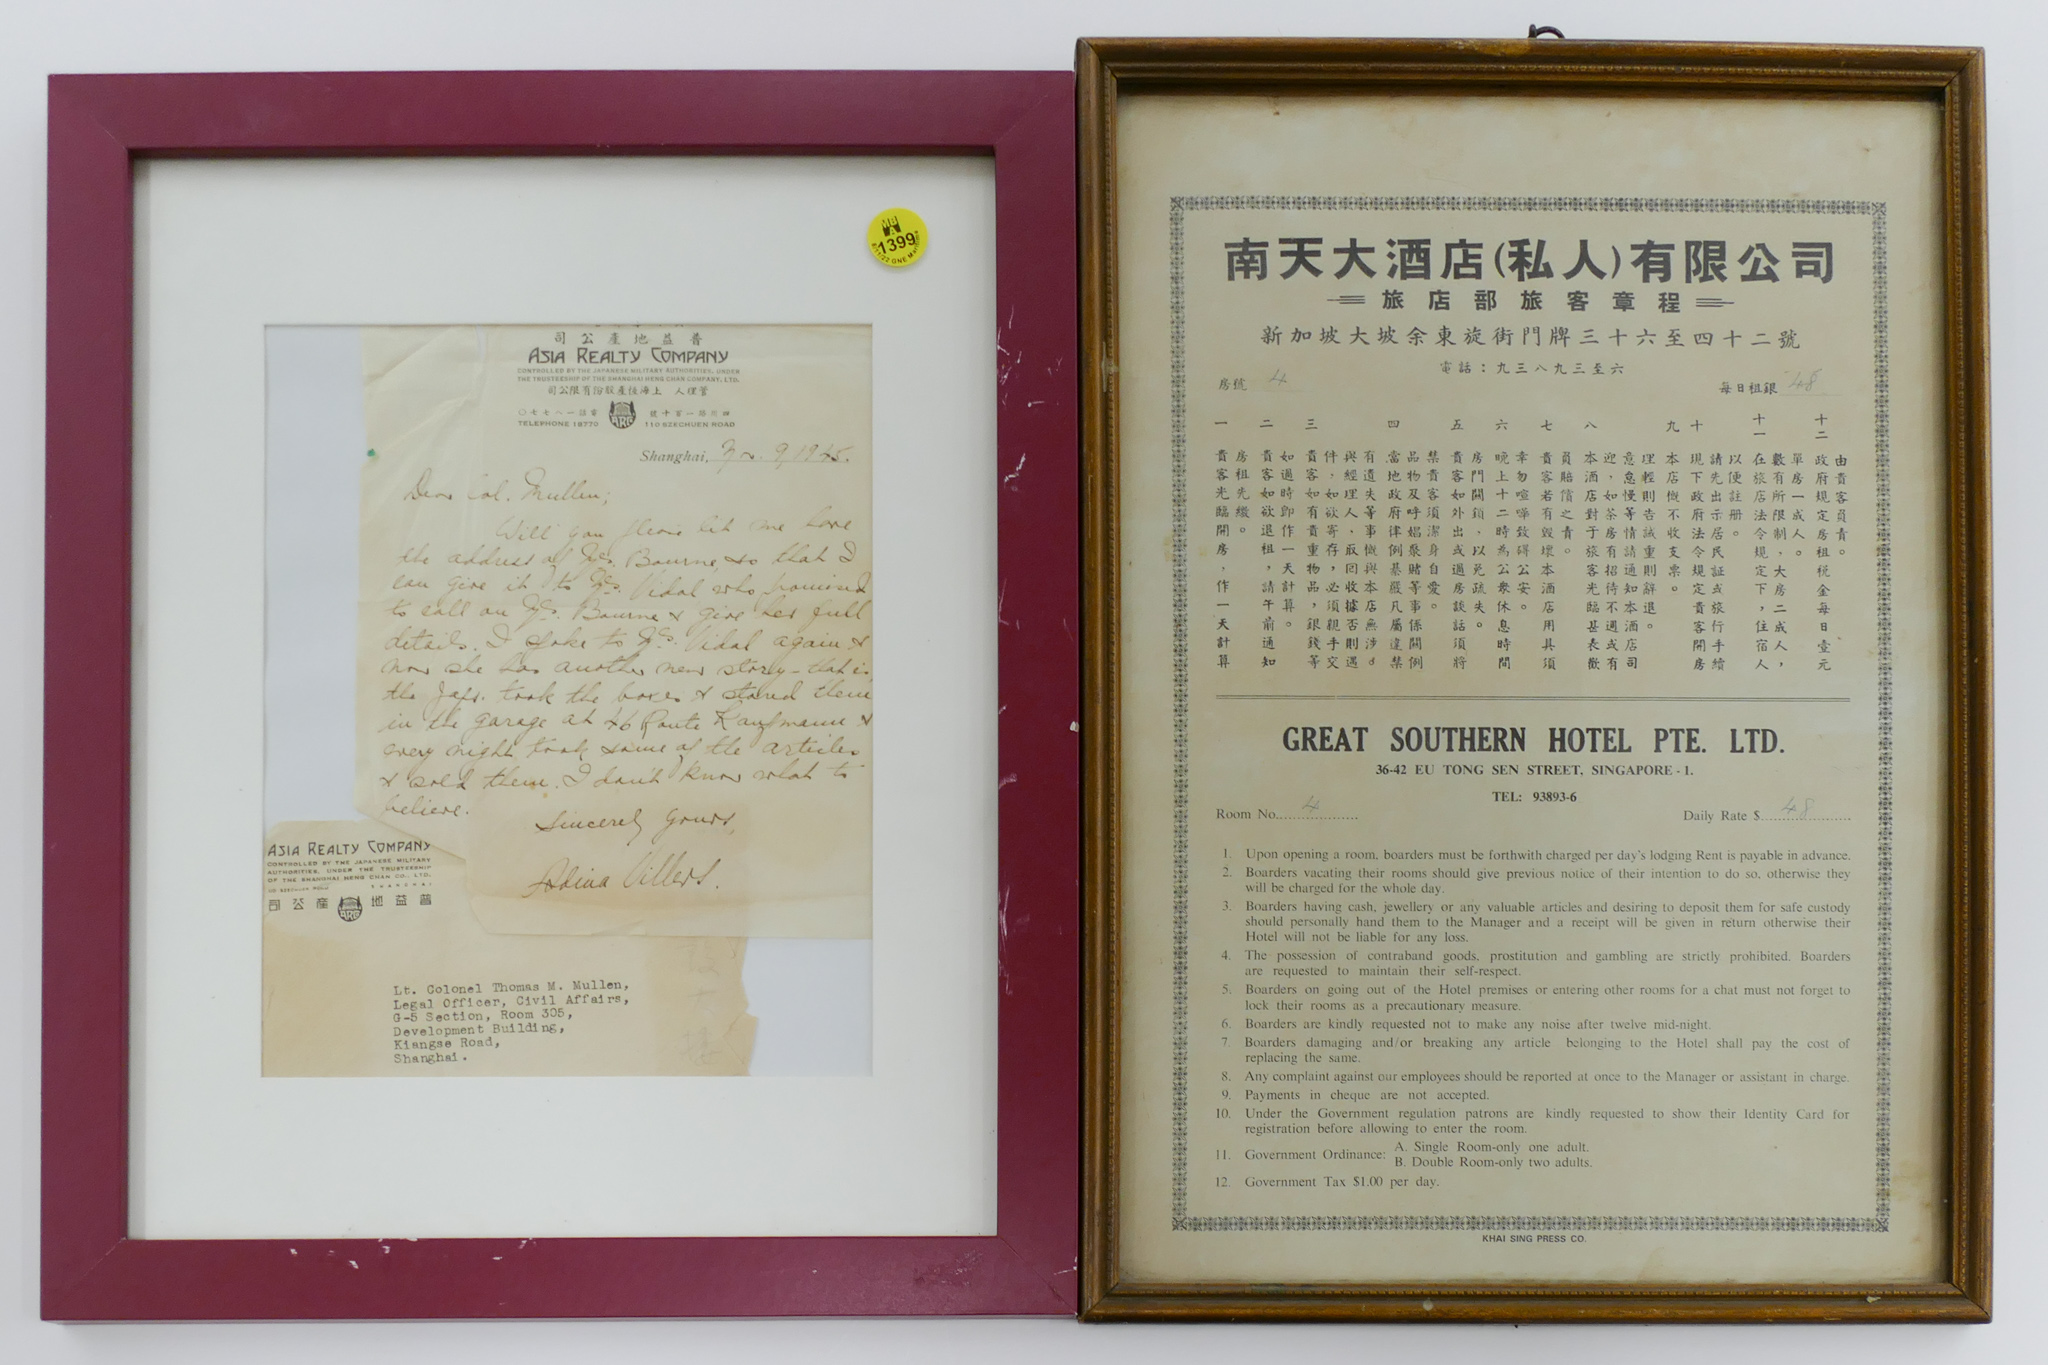 司公產地益普
ASIA REALTY COMPANY
CONTROLLED BY THE JAPANESE MILITARY AUTHORITIES, UNDER
THE TRUSTEESHIP OF THE SHANGHAI HENG CHAN COMPANY, LTD.
司公限有份股產恆海上 人理管
〇七七八一話電 號十百一路川四
TELEPHONE 18770 ARCO 110 SZECHUEN ROAD
Shanghai, 9, 1945.
Dear Col. Mullen;
Will you please let me have
the address of Mrs. Bourne, so that I
can give it to Mrs. Vidal who promised
to call on Mrs. Bourne & give her full
details. I spoke to Mrs. Vidal again &
now she has another new story - that is,
the Japs. took the boxes & stored them
in the garage at 46 Route Kaufmann &
every night took some of the articles
& sold them. I don't know what to
believe.
Sincerely yours,
Villers.
ASIA REALTY COMPANY
CONTROLLED BY THE JAPANESE MILITARY
AUTHORITIES, UNDER THE TRUSTEESHIP
OF THE SHANGHAI HENG CHAN CO., LTD.
110 SZECHUEN ROAD SHANGHAI
司公產 地益普
Lt. Colonel Thomas M. Mullen,
Legal Officer, Civil Affairs,
G-5 Section, Room 305,
Development Building,
Kiangse Road,
Shanghai.
MB
A
1399
南天大酒店(私人)有限公司
旅店部旅客章程
新加坡大坡余東旋街門牌三十六至四十二號
電話：九三八九三至六
房號 4 每日租銀 48
一 貴客光臨開房，作一天計算
房租先繳。
二 貴客如欲退租，請午前通知
如過時即作一天計算。
三 貴客如有貴重物品，銀錢等
件，如欲寄存，必須親手交
與經理人、取回收據否則遇
有遺失等事概與本店無涉。
四 當地政府律例基嚴凡屬違禁
品物及呼娼聚賭等事係關例
禁貴客須潔身自愛。
五 貴客如外出或過房談話須將
房門關鎖，以免疏失。
六 晚上十二時為公眾休息時間
幸勿喧嘩致碍公安。
七 貴客若有毀壞本酒店用具須
員賠償之責。
八 本酒店對于旅客光臨甚表歡
迎，如茶房有招待不週或有
意怠慢等情請通知本酒店司
理輕則告誡重則辭退。
九 本店概不收支票。
十 現下政府法令規定貴客開房
請先出示居民証或旅行手續
以便註冊。
十一 在旅店法令規定下，住宿人
數有所限制，大房二成人，
單房一成人。
十二 政府規定房租稅金每日壹元
由貴客員責。
GREAT SOUTHERN HOTEL PTE. LTD.
36-42 EU TONG SEN STREET, SINGAPORE - 1.
TEL: 93893-6
Room No. 4 Daily Rate $ 48
1. Upon opening a room, boarders must be forthwith charged per day's lodging Rent is payable in advance.
2. Boarders vacating their rooms should give previous notice of their intention to do so, otherwise they
will be charged for the whole day.
3. Boarders having cash, jewellery or any valuable articles and desiring to deposit them for safe custody
should personally hand them to the Manager and a receipt will be given in return otherwise their
Hotel will not be liable for any loss.
4. The possession of contraband goods, prostitution and gambling are strictly prohibited. Boarders
are requested to maintain their self-respect.
5. Boarders on going out of the Hotel premises or entering other rooms for a chat must not forget to
lock their rooms as a precautionary measure.
6. Boarders are kindly requested not to make any noise after twelve mid-night.
7. Boarders damaging and/or breaking any article belonging to the Hotel shall pay the cost of
replacing the same.
8. Any complaint against our employees should be reported at once to the Manager or assistant in charge.
9. Payments in cheque are not accepted.
10. Under the Government regulation patrons are kindly requested to show their Identity Card for
registration before allowing to enter the room.
11. Government Ordinance: A. Single Room-only one adult.
B. Double Room-only two adults.
12. Government Tax $1.00 per day.
KHAI SING PRESS CO.